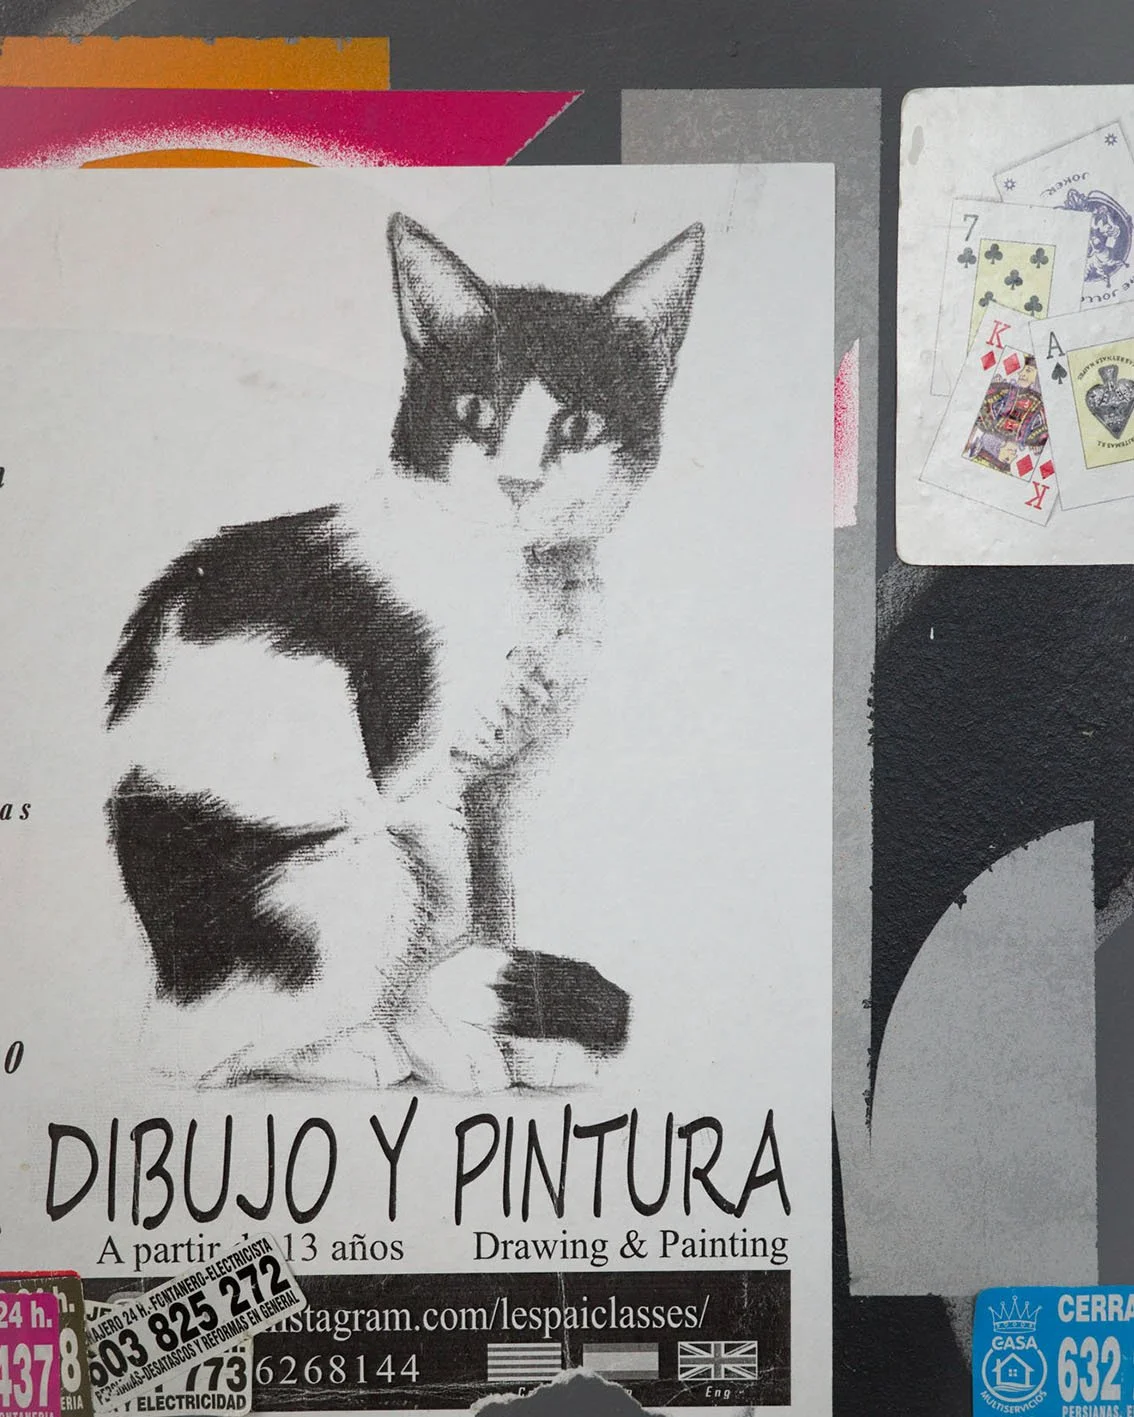 JOKER
7
K
A
K
as
0
DIBUJO Y PINTURA
A partir 13 años
Drawing & Painting
instagram.com/lespaiclasses/
6268144
Eng
24 h.
437
8
773
Y ELECTRICIDAD
24 H.-FONTANERO-ELECTRICISTA
603 825 272
PERSIANAS-DESATASCOS Y REFORMAS EN GENERAL
CASA
MULTISERVICIOS
CERRA
632
PERSIANAS, E